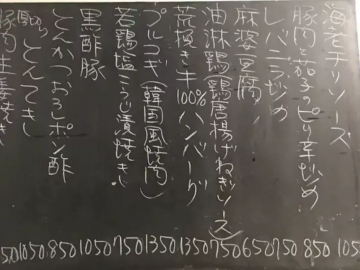 海老チリソース 105
豚肉と茄子のピリ辛炒め 850
レバニラ炒め 750
麻婆豆腐 650
油淋鶏(鶏唐揚げねぎソース) 750
荒挽き牛100%ハンバーグ 1350
プルコギ(韓国風焼肉) 1350
若鶏塩こうじ漬焼き 750
黒酢豚 1050
とんかつおろしポン酢 850
とんてき 1050
豚肉生姜焼き 50